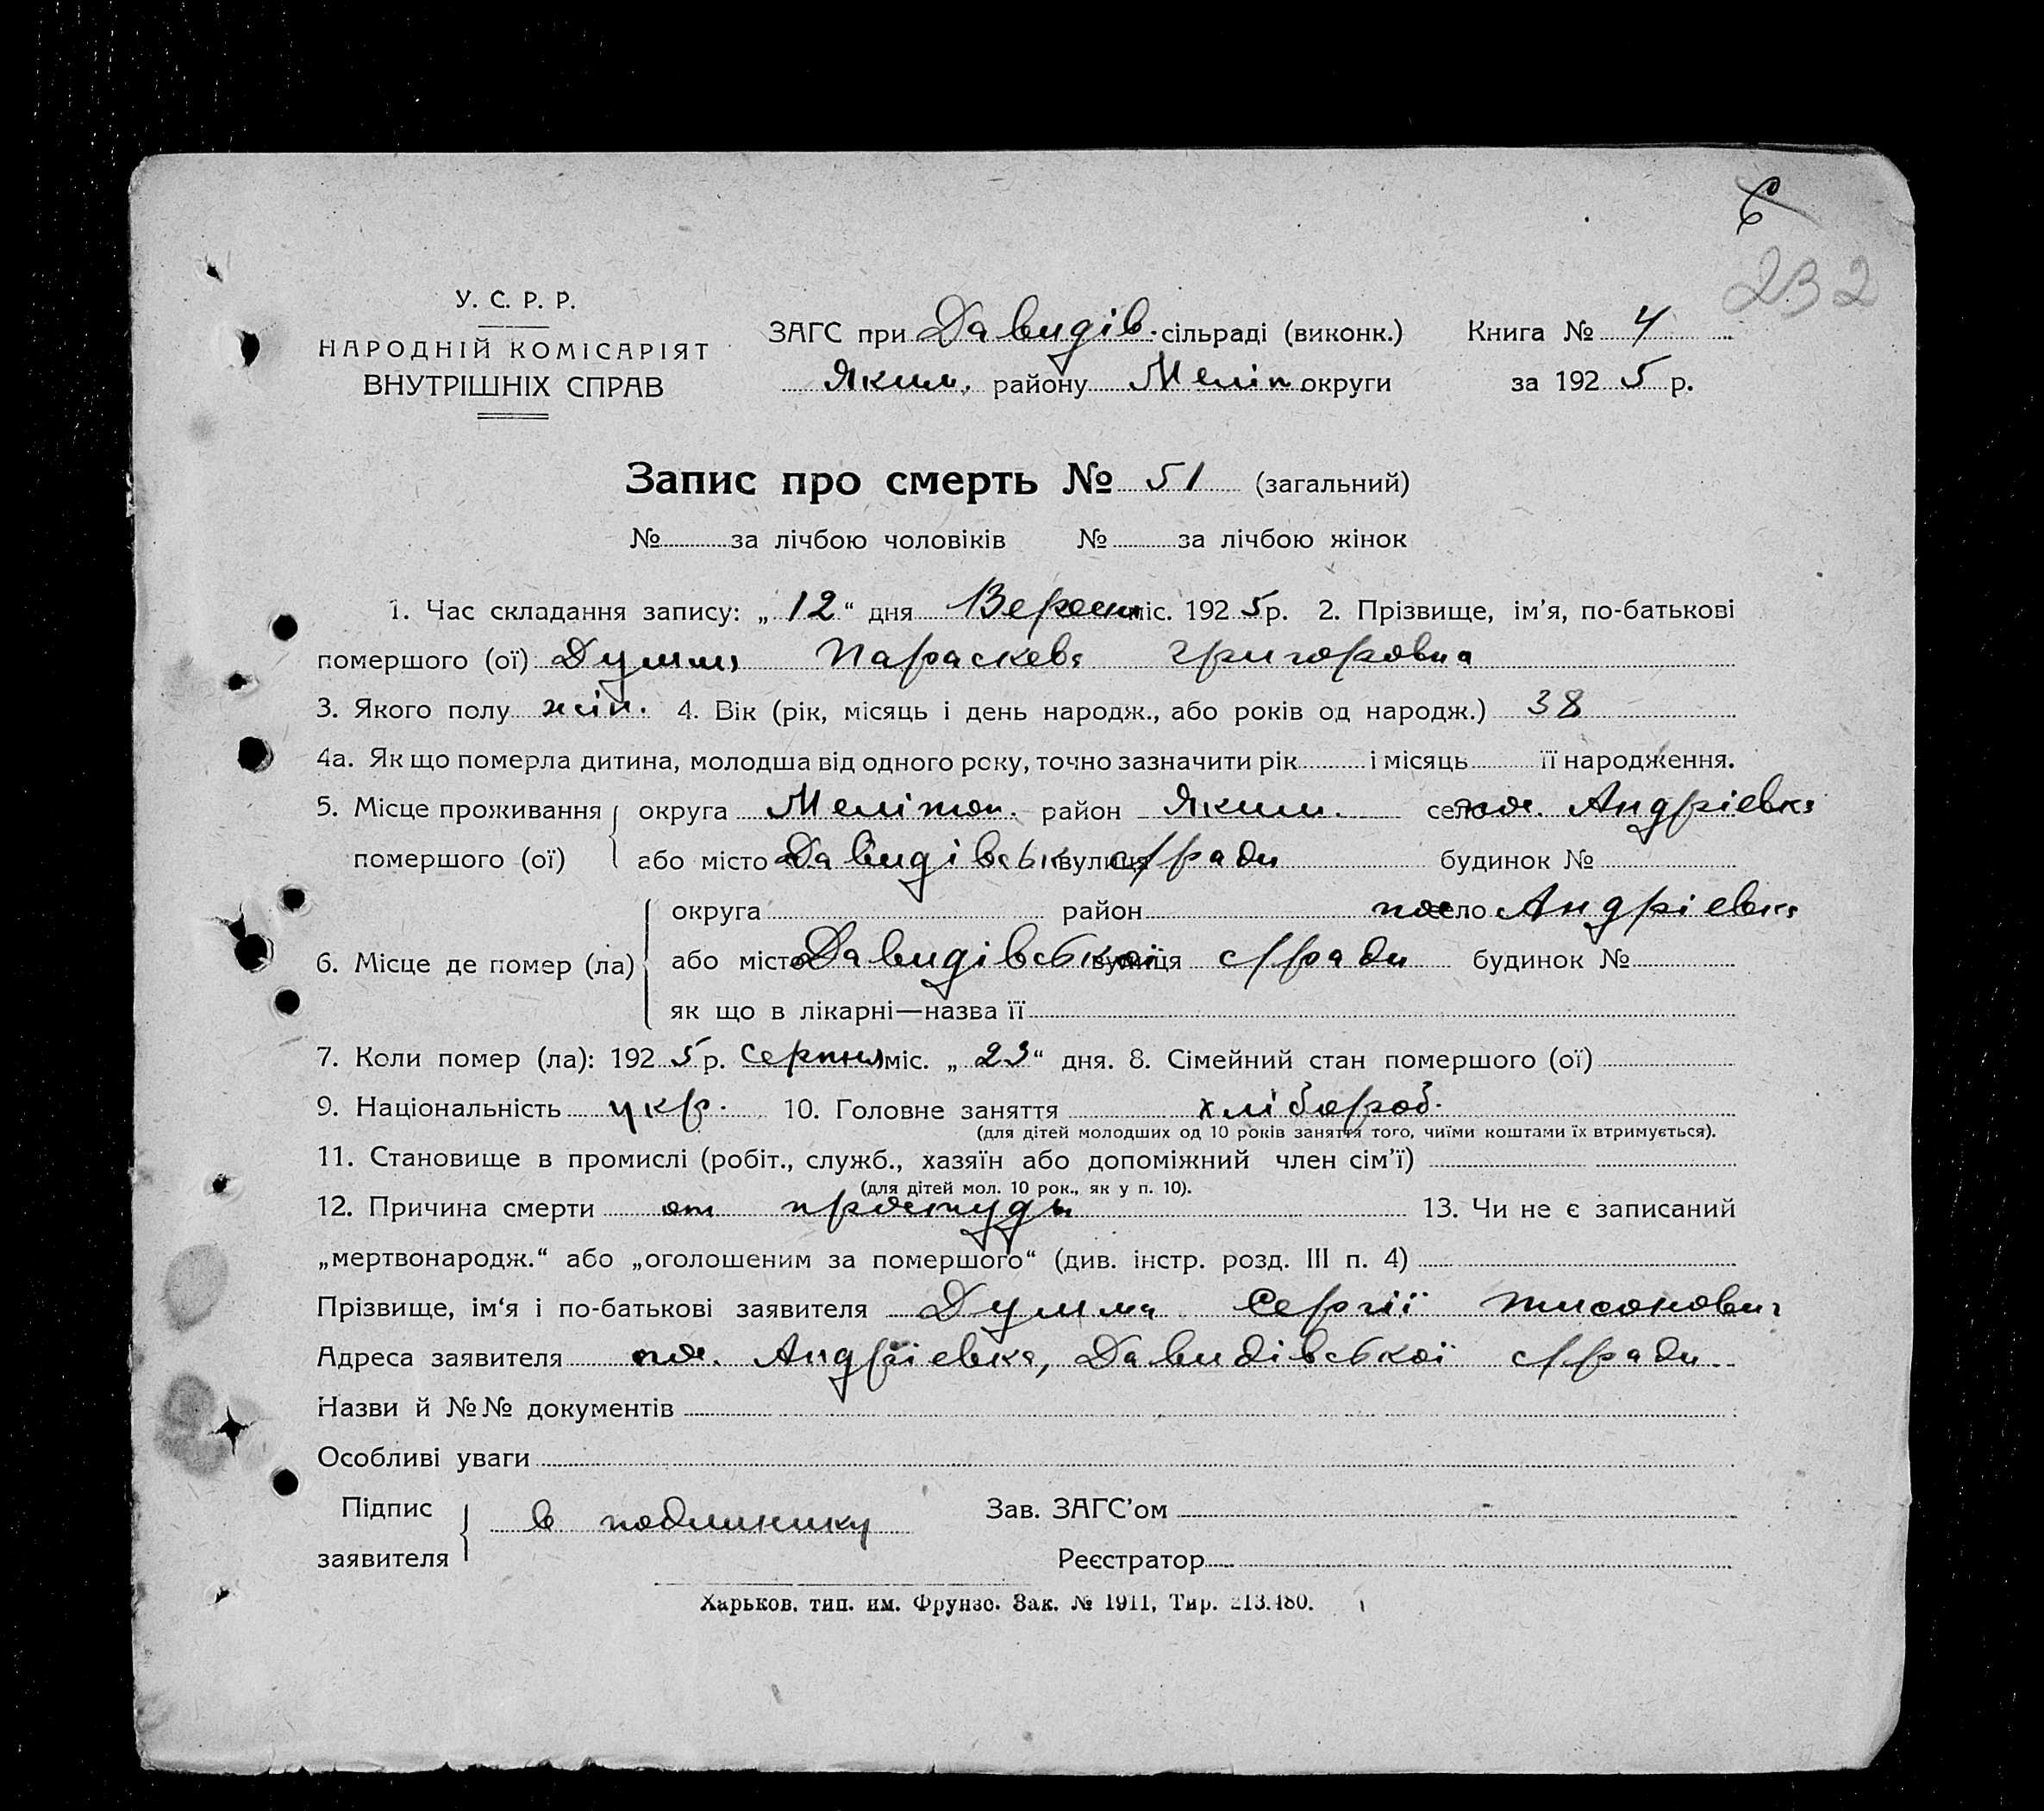 232
У. С. Р. Р.
НАРОДНІЙ КОМІСАРІЯТ
ВНУТРІШНІХ СПРАВ
ЗАГС при Давидів. сільраді (виконк.) Книга № 4
Яким. району Меліт округи за 1925 р.
Запис про смерть № 51 (загальний)
№ за лічбою чоловіків № за лічбою жінок
1. Час складання запису: „12“ дня Вересн міс. 1925 р. 2. Прізвище, ім’я, по-батькові
помершого (ої) Параскева Григоровна
3. Якого полу жін. 4. Вік (рік, місяць і день народж., або років од народж.) 38
4а. Як що померла дитина, молодша від одного року, точно зазначити рік і місяць її народження.
5. Місце проживання округа Мелітоп. район Яким. село пос. Андрієвка
помершого (ої) або місто Давидівськ вулиця с/ради будинок №
округа район село пос Андрієвка
6. Місце де помер (ла) або місто Давидівської вулиця с/ради будинок №
як що в лікарні—назва її
7. Коли помер (ла): 1925 р. Серпня міс. „23“ дня. 8. Сімейний стан помершого (ої)
9. Національність укр. 10. Головне заняття хлібороб.
(для дітей молодших од 10 років заняття того, чиїми коштами їх втримується).
11. Становище в промислі (робіт., служб., хазяїн або допоміжний член сім’ї)
(для дітей мол. 10 рок., як у п. 10).
12. Причина смерти от простуды 13. Чи не є записаний
„мертвонародж.“ або „оголошеним за помершого“ (див. інстр. розд. III п. 4)
Прізвище, ім‘я і по-батькові заявителя Сергії
Адреса заявителя пос. Андрієвка, Давидівської с/ради
Назви й №№ документів
Особливі уваги
Підпис
заявителя в подлинику Зав. ЗАГС’ом
Реєстратор
Харьков, тип. им. Фрунзе. Зак. № 1911, Тир. 213.480.